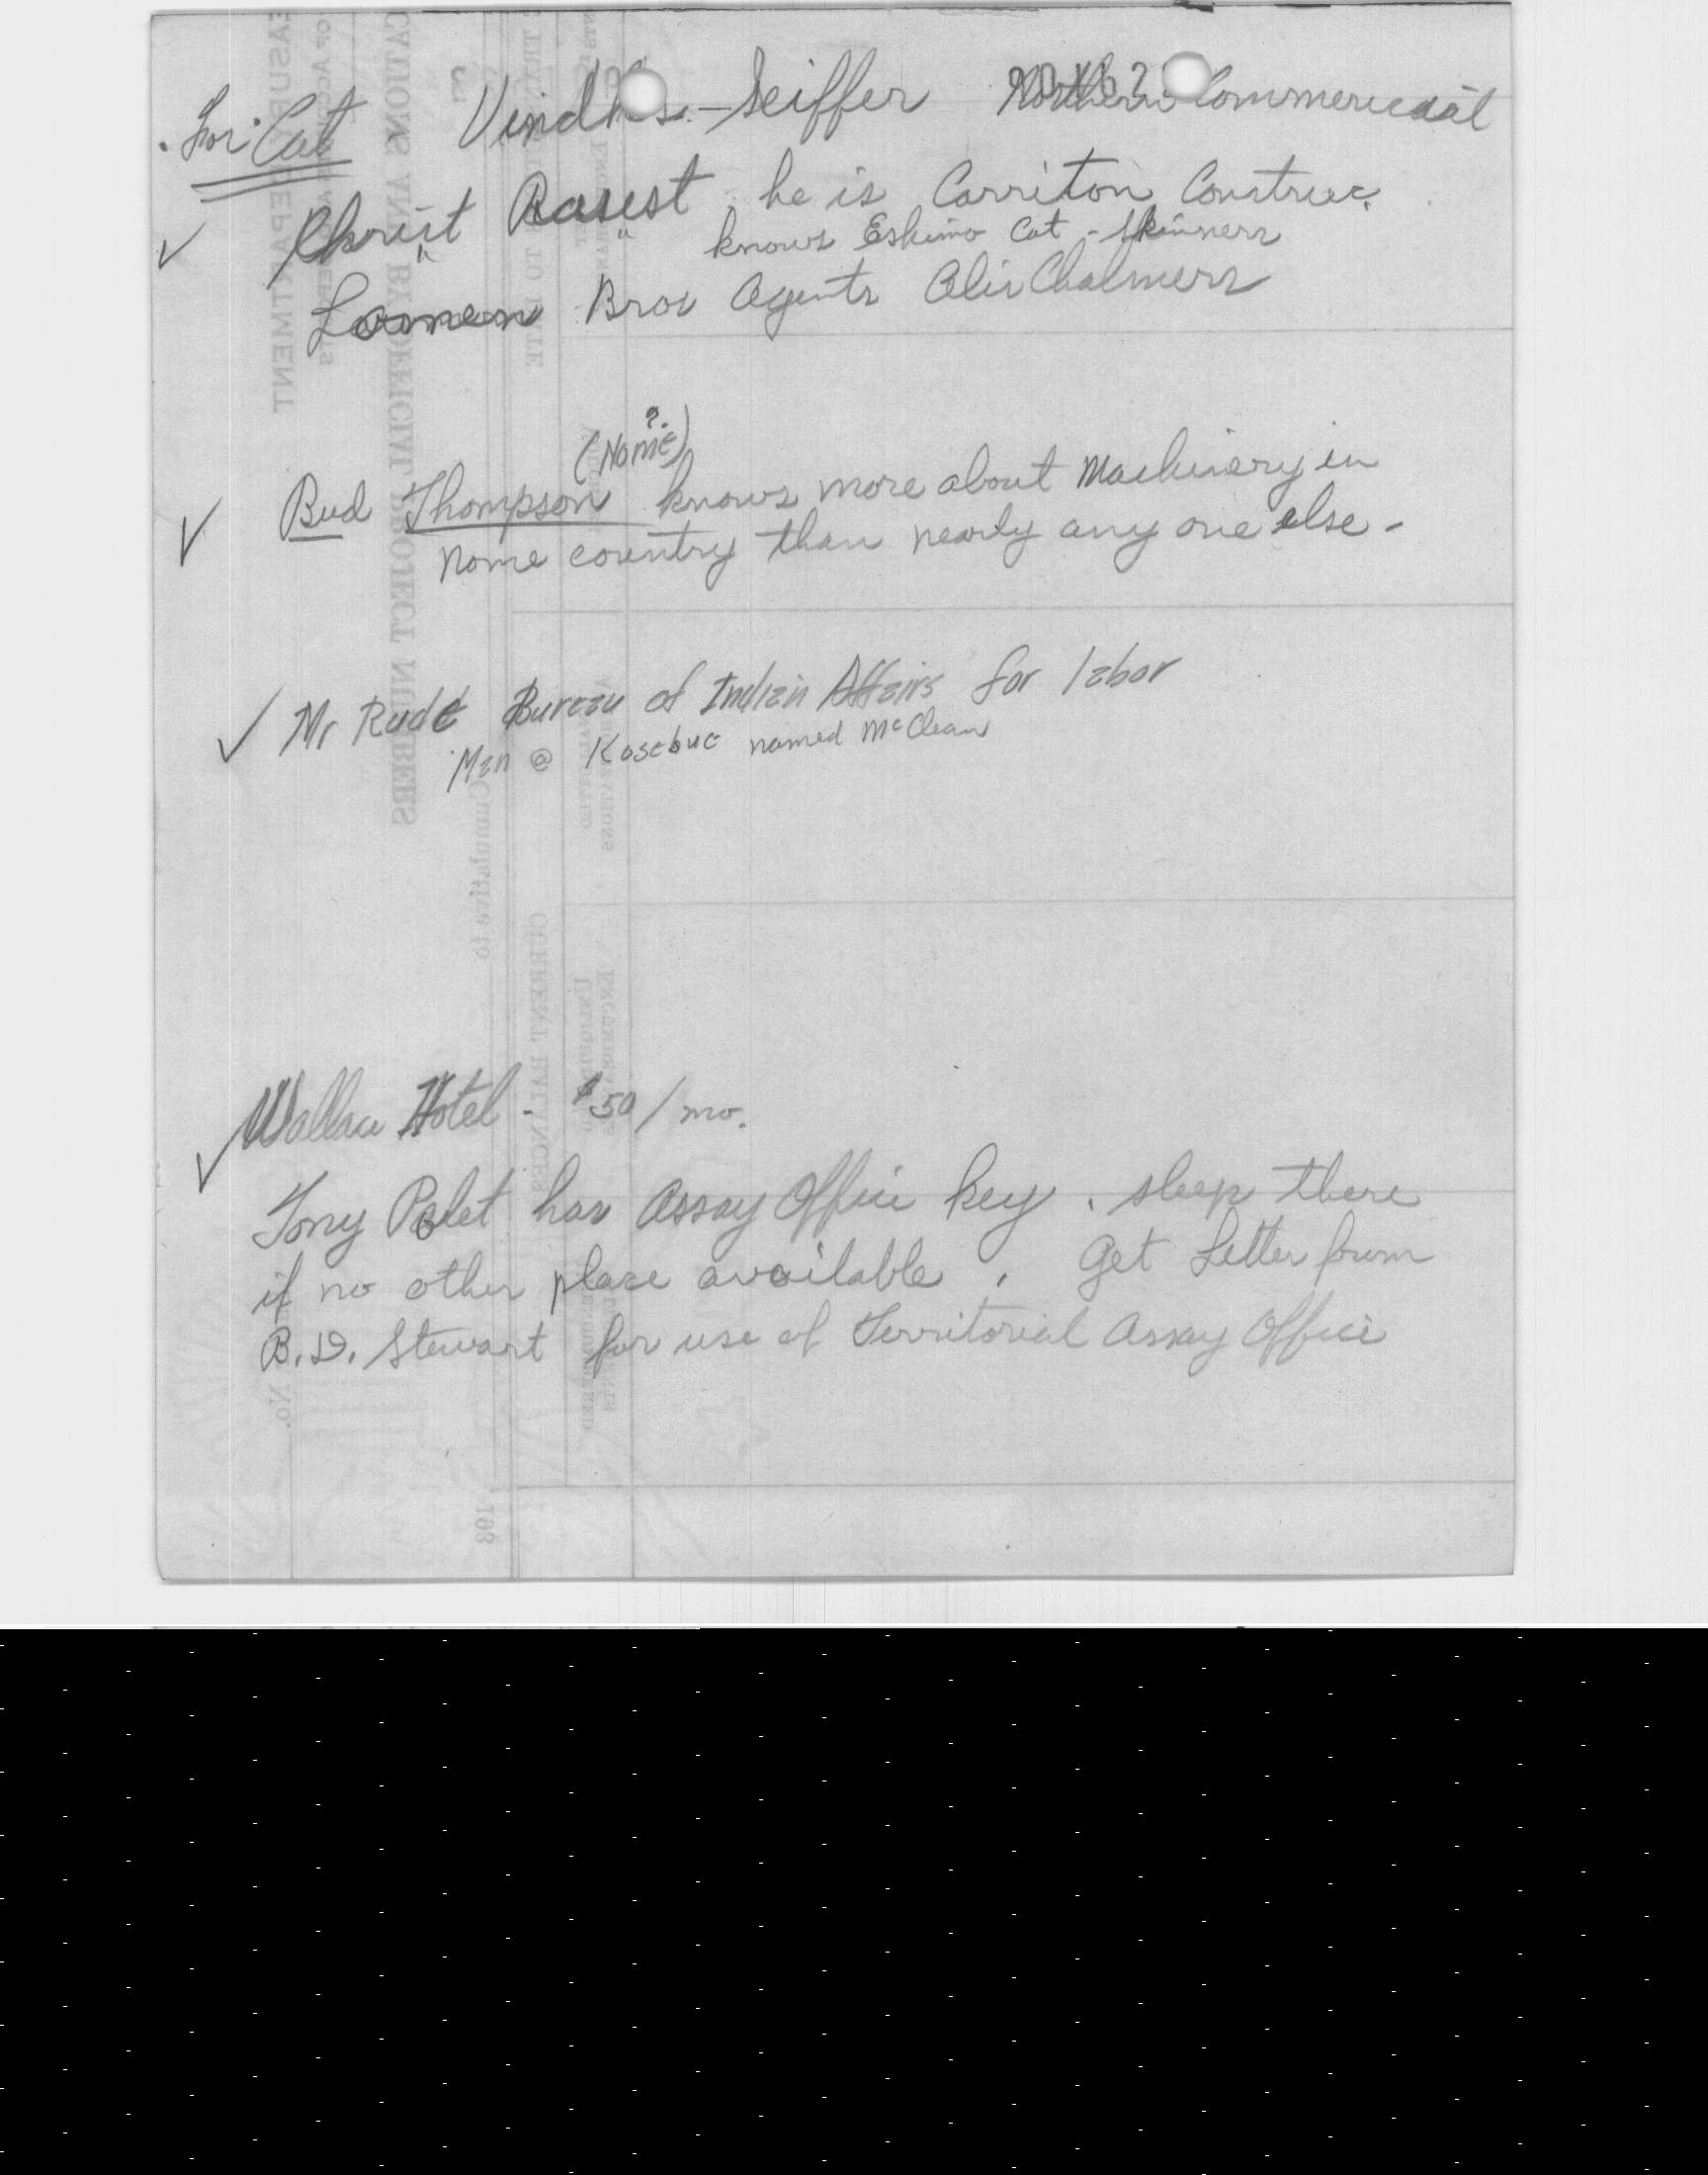 For Cat Seiffer Northern Commericaal
Christ he is Carriton Construc.
knows Eskimo Cat-Skinners
Lomen Bros Agents Alis Chalmers
(Nome)?
Bud Thompson knows more about Machinery in
Nome country than nearly any one else -
Mr Rude Bureau of Indian Affairs for labor
Man @ Kosebue named McClean
Wallace Hotel - $50/mo.
Tony Polet has Assay Office key. sleep there
if no other place available. Get Letter from
B.D. Stewart for use of Territorial Assay Office